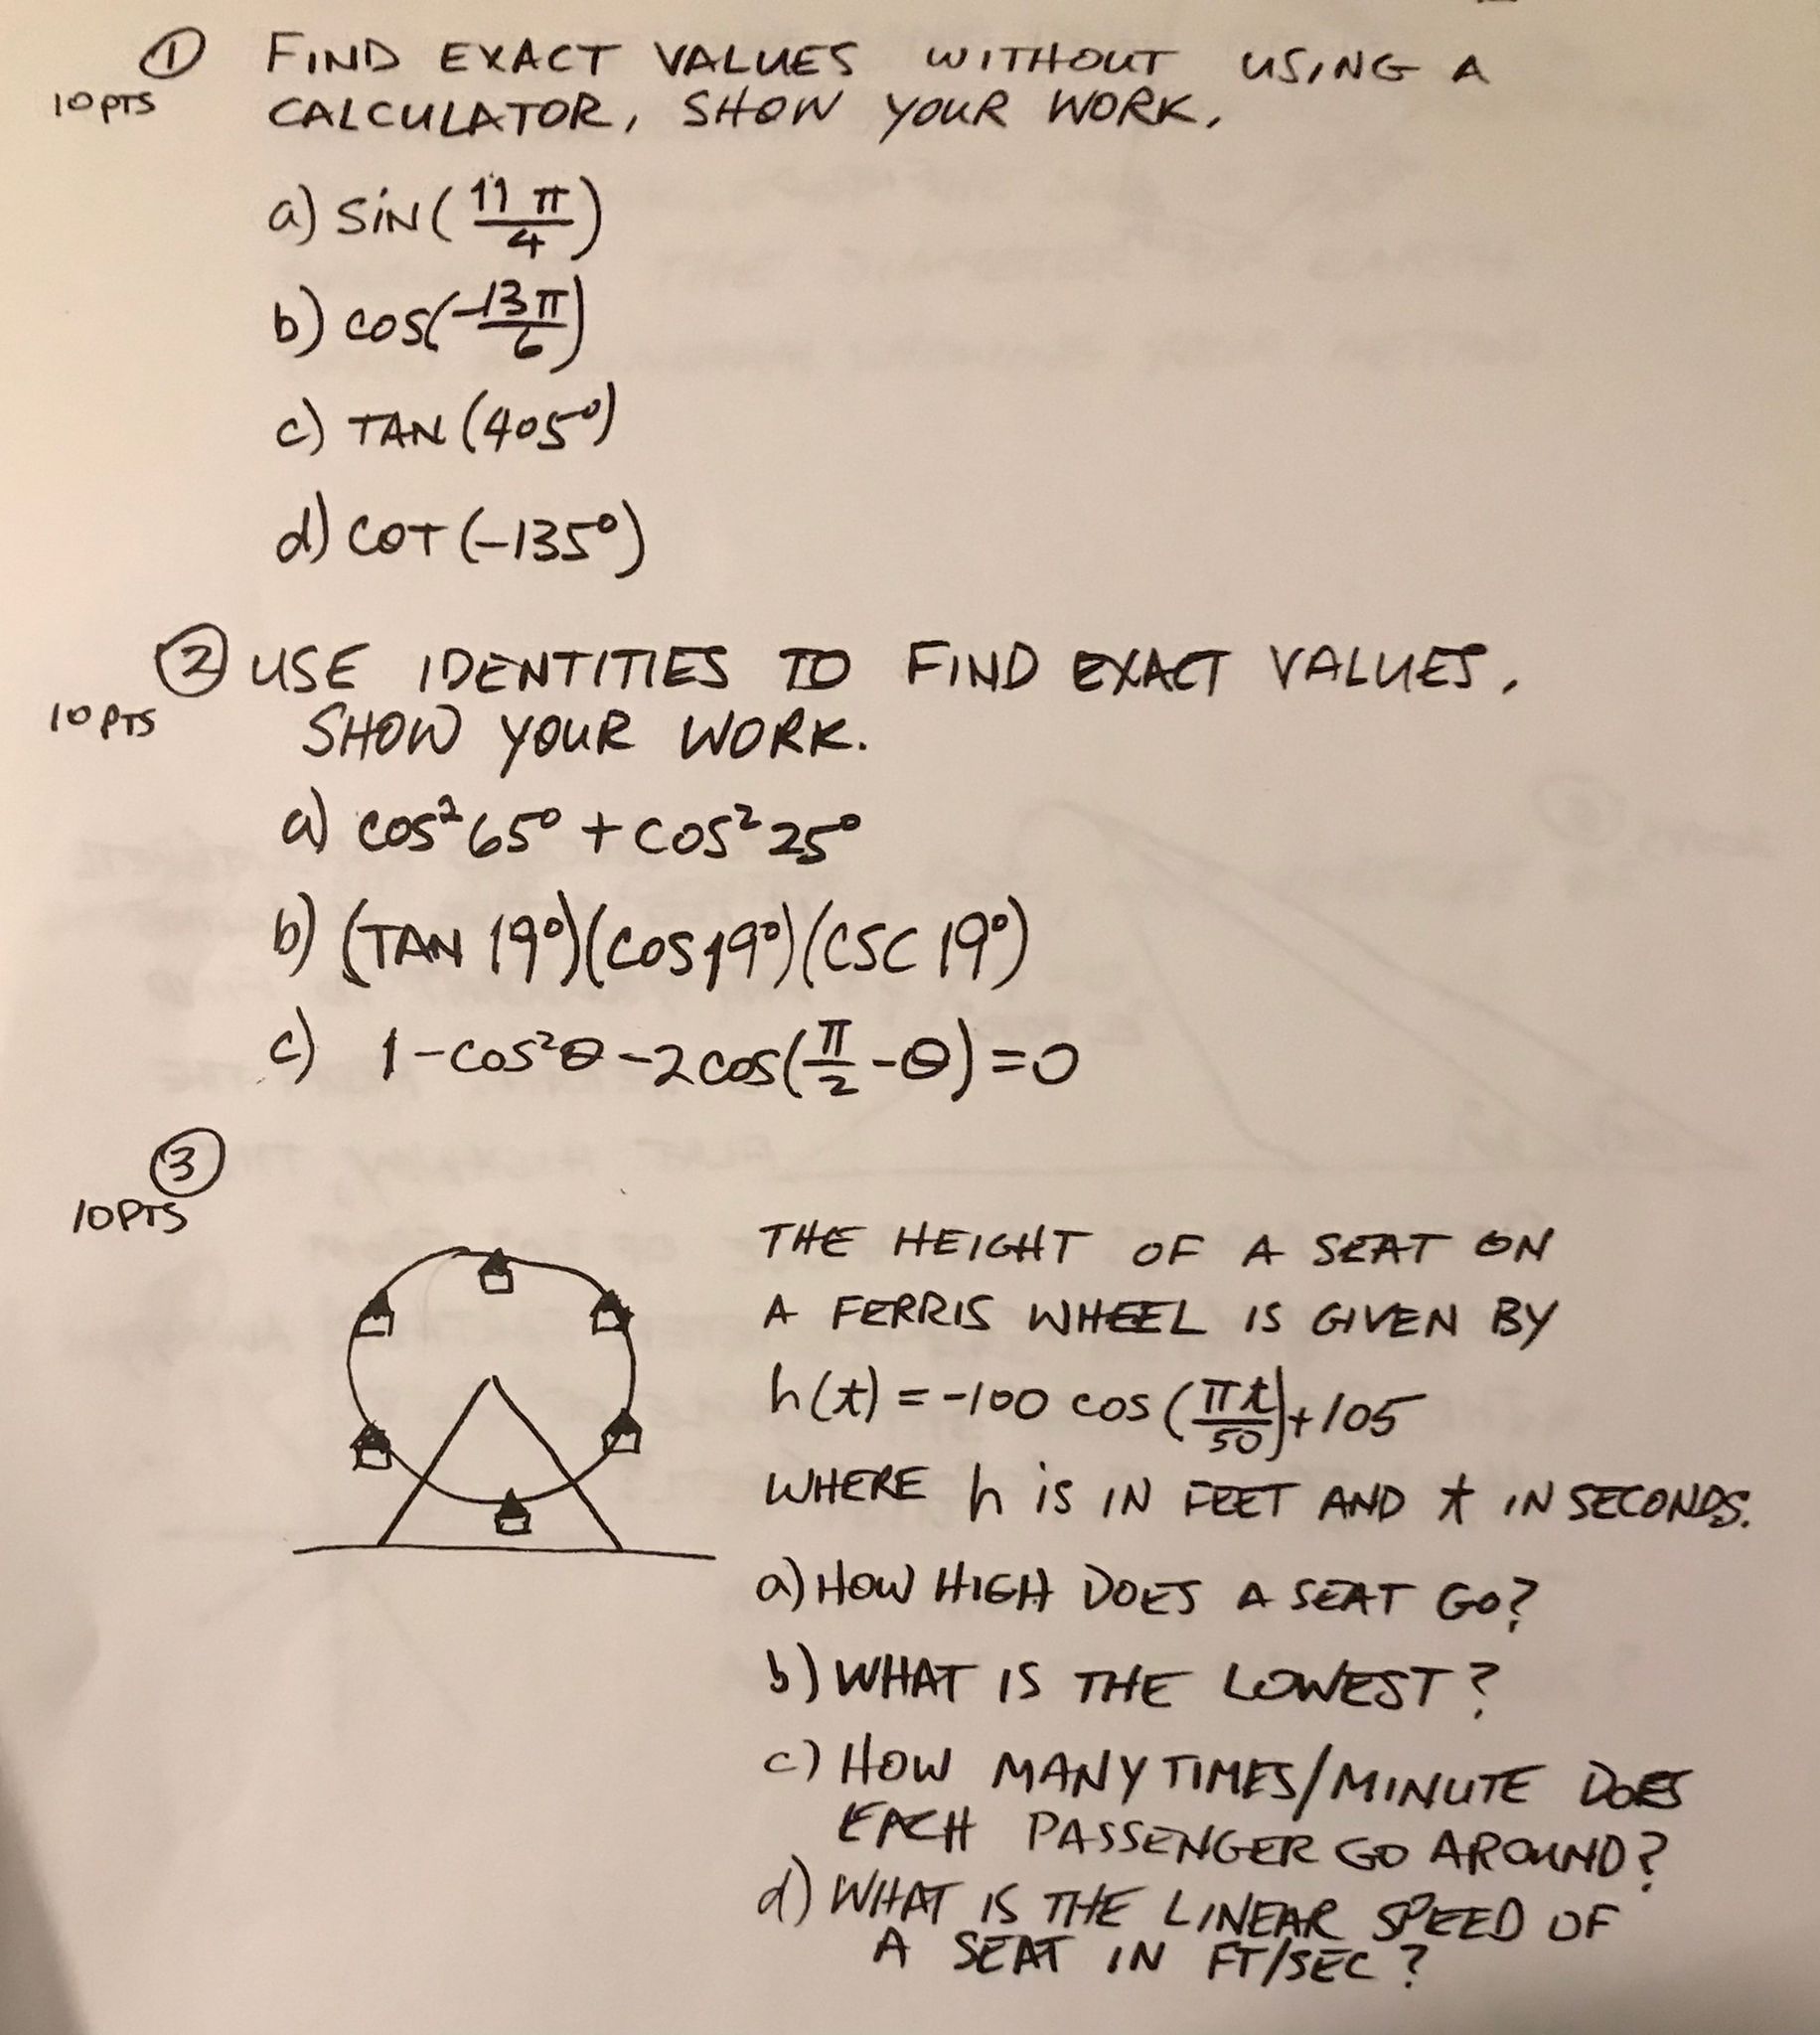 ① FIND EXACT VALUES WITHOUT USING A
10 PTS CALCULATOR, SHOW YOUR WORK.
a) SIN(11π/4)
b) COS(-13π/6)
c) TAN(405°)
d) COT(-135°)
② USE IDENTITIES TO FIND EXACT VALUES.
10 PTS SHOW YOUR WORK.
a) COS²65° + COS²25°
b) (TAN 19°)(COS 19°)(CSC 19°)
c) 1-COS²θ-2COS(π/2-θ)=0
③
10PTS
THE HEIGHT OF A SEAT ON
A FERRIS WHEEL IS GIVEN BY
h(t) = -100 COS(πt/50)+105
WHERE h iS IN FEET AND t IN SECONDS.
a) HOW HIGH DOES A SEAT GO?
b) WHAT IS THE LOWEST?
c) HOW MANY TIMES/MINUTE DOES
EACH PASSENGER GO AROUND?
d) WHAT IS THE LINEAR SPEED OF
A SEAT IN FT/SEC?